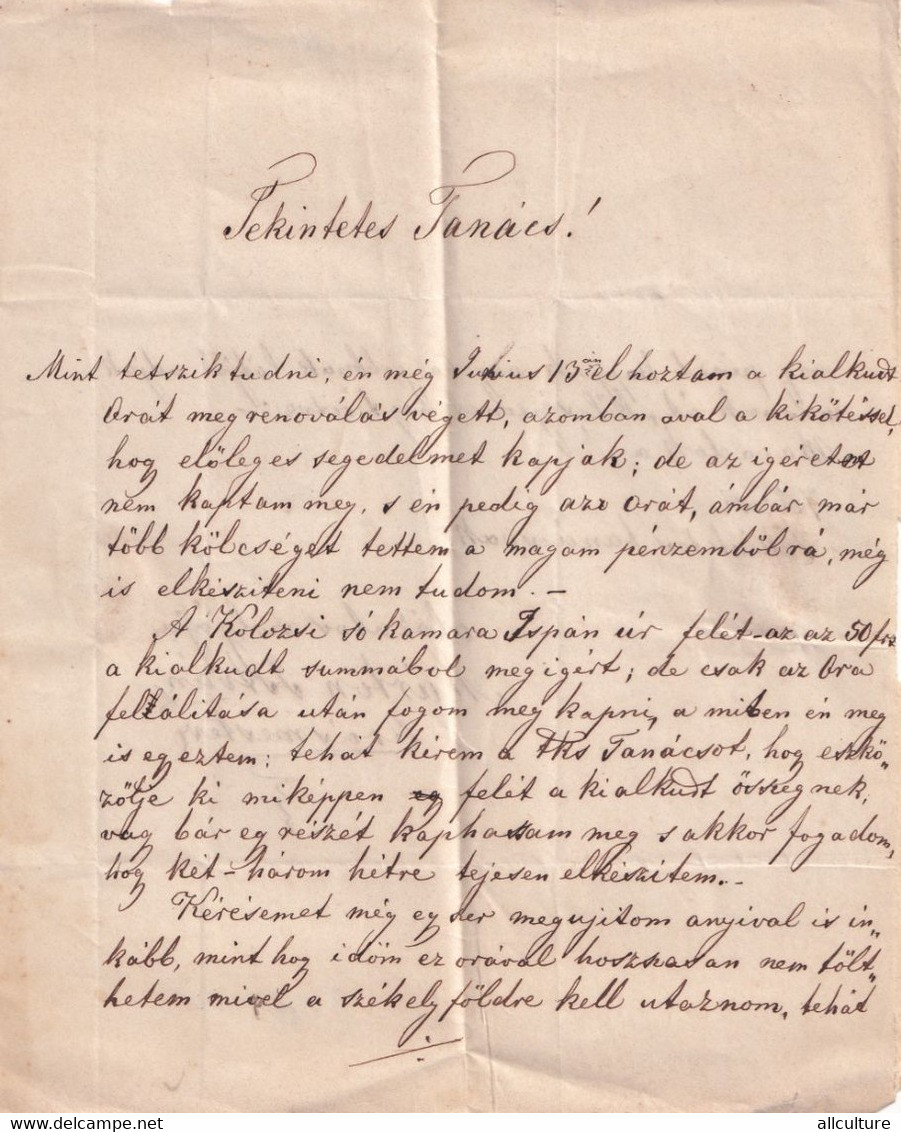 Tekintetes Tanács!
Mint tetszik tudni, én még Junius 13án el hoztam a kialkudt
Orát meg renoválás végett, azomban aval a kikötéssel,
hog elöleges segedelmet kapjak; de az igéretet
nem kaptam meg, s én pedig azt Orát, ámbár már
több kölcséget tettem a magam pénzemböl rá, még
is elkésziteni nem tudom. –
A Kolozsi só kamara Ispán úr felét-az az 50 frt
a kialkudt summábol meg igért; de csak az Ora
felálitása után fogom meg kapni, a miben én meg
is egeztem; tehát kérem a tks Tanácsot, hog eszkö„
zölje ki miképpen felét a kialkudt összegnek,
vag bár eg részét kaphassam meg s akkor fogadom,
hog két-három hétre tejesen elkészitem.–
Kérésemet még egszer megujitom anyival is in„
kább, mint hog idöm ez orával hosszasan nem tölt„
hetem mivel a székely földre kell utaznom, tehát
./.
www.delcampe.net
allculture